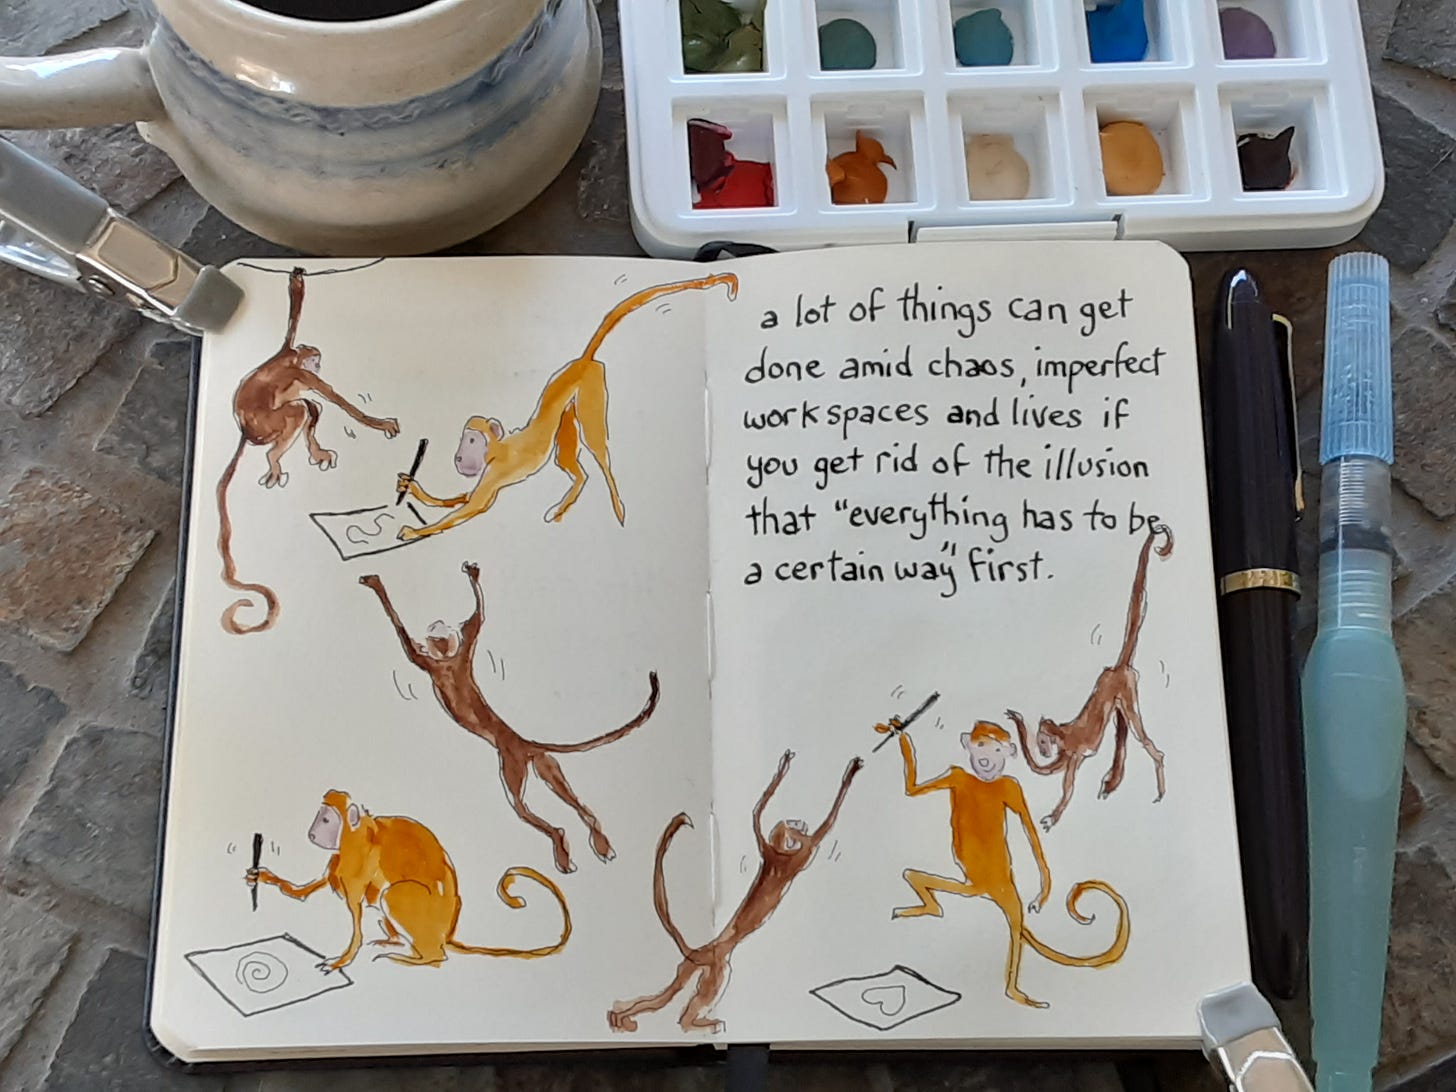 a lot of things can get
done amid chaos, imperfect
workspaces and lives if
you get rid of the illusion
that "everything has to be
a certain way" first.